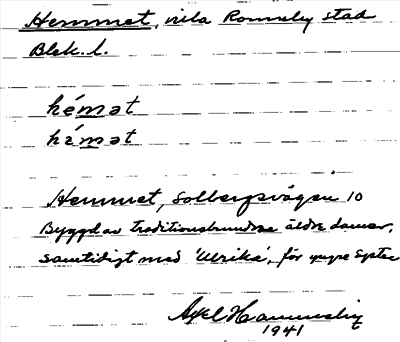 Hemmet, villa Ronneby stad
Blek. l.
hémət
hímət
Hemmet, Solbergsvägen 10
Byggd av traditionsbundna äldre damer,
samtidigt med 'Ulrika', för yngre syster
Axel Hammarby
1941